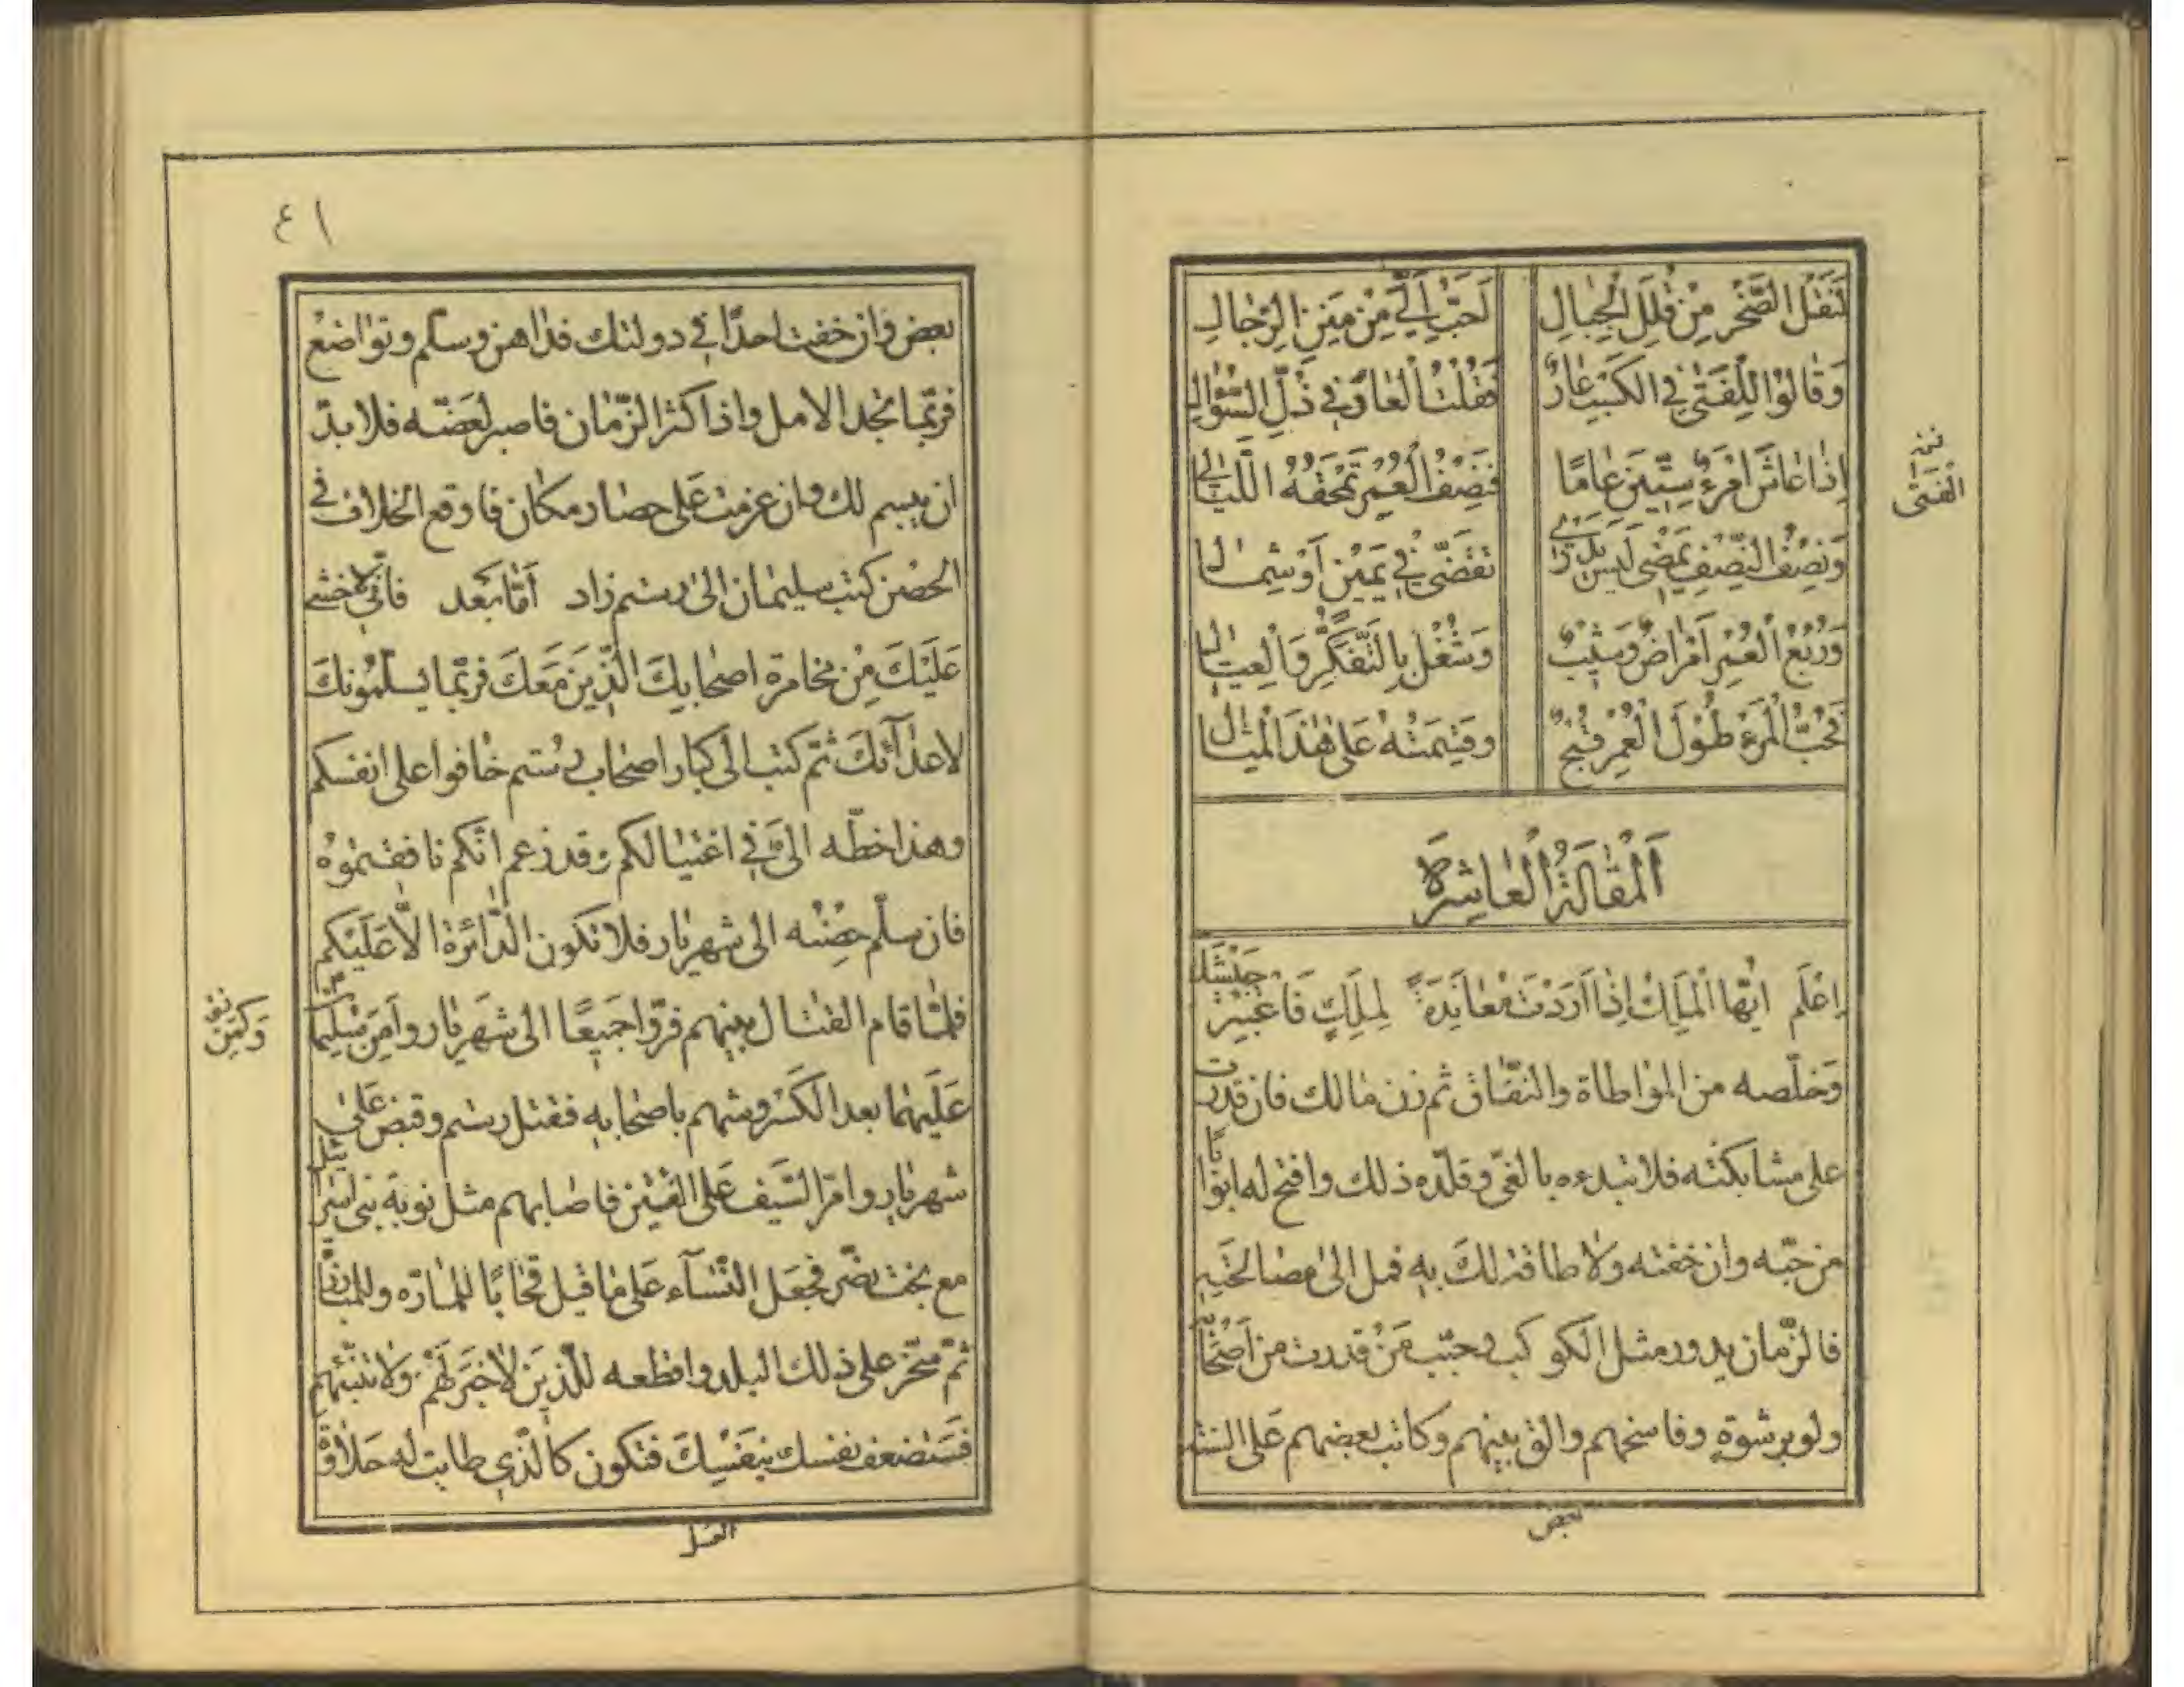 لَنَقْلُ الصَّخْرِ مِنْ قُلَلِ الْجِبَالِ لَحَبُّ اِلَيَّ مِنْ مِنَنِ الرِّجَالِ
وَقَالُوا لِلْفَتٰى فِي الكَسْبِ عَارٌ فَقُلْتُ الْعَارُ فِي ذُلِّ السُّؤَالِ
اِذَا عَاشَ امْرُءٌ سِتِّينَ عَامًا فَنِصْفُ الْعُمْرِ تَمْحَقُهُ اللَّيَالِي
وَنِصْفُ النِّصْفِ يَمْضِي لَيْسَ يَدْرِي تَقَضّٰى فِي يَمِينٍ اَوْ شِمَالِ
وَرُبْعُ الْعُمْرِ اَمْرَاضٌ وَشَيْبٌ وَشُغْلٌ بِالتَّفَكُّرِ وَالْعِيَالِ
فَحُبُّ الْمَرْءِ طُولَ الْعُمْرِ قُبْحٌ وَقِسْمَتُهُ عَلٰى هٰذَا الْمِثَالِ
نخ
الْفَتٰى
اَلْمَقَالَةُ الْعَاشِرَةُ
اِعْلَم اَيُّهَا الْمَلِكُ اِذَا اَرَدْتَ مُعَانَدَةً لِمَلِكٍ فَاعْتَبِرْ جَيْشَكَ
وَخلّصه من المواطاة والنفاق ثم زن مالك فان قدرت
على مشابكته فلا تبدءه بالغيّ وقلّده ذلك وافتح له ابوابًا
من حبّه وان خفته ولا طاقة لكَ بِهِ فمل الى مصالحته
فالزّمان يدور مثل الكوكب وحبّب مَنْ قدرت من اَصْحَا
ولو برشوةٍ وفاسخهم والق بينهم وكاتب بعضهم عَلى
بعض
٤١
بعض وان خفت احدًا في دولتك فداهن وسلّم وتواضعْ
فربّما تجد الامل واذا كثر الزّمان فاصبر لعَضّه فلا بدّ
ان يبسم لك وان عزمت عَلى حصار مكان فاوقع الخلاف في
الحصْن كتب سليمان الى رستم زاد اَمّا بَعْد فانّي لاخشى
عَلَيْكَ مِنْ مخامرة اصحابِكَ الَّذِينَ مَعَكَ فربّما يسلّمُونكَ
لاعدآئكَ ثمّ كتب الى كبار اصحاب رُستم خافوا على انفسكم
وهذا خطّه اليَّ في اغتيالكم وقد زعم انّكم نافقتموهُ
فان سلّم حِصْنُه الى شهريار فلا تكون الدّائرة الّا عَلَيْكم
فلمّا قام القتال بينهم فرّوا جميعًا الى شهريار وامِن سُلَيْمٰن
نخ
وَكَمِنَ
عَلَيهما بعد الكَسْر وشهم باصحابِهِ فقتل رستم وقبض عَلى
شهريار وامرّ السّيف عَلى الفئتين فاصابهم مثل نوبة بني اسرائيل
مع بخت نصّر فجعَل النّسآء عَلى ما قيل قحابًا للمارّه وللمبارزة
ثمّ سخّر على ذلك البلد واقطعه للّذين لا خيرَ لهُمْ ولا
فتستضعف نفسك بنفْسِكَ فتكون كالّذي طابت له حَلاوةُ
العسل